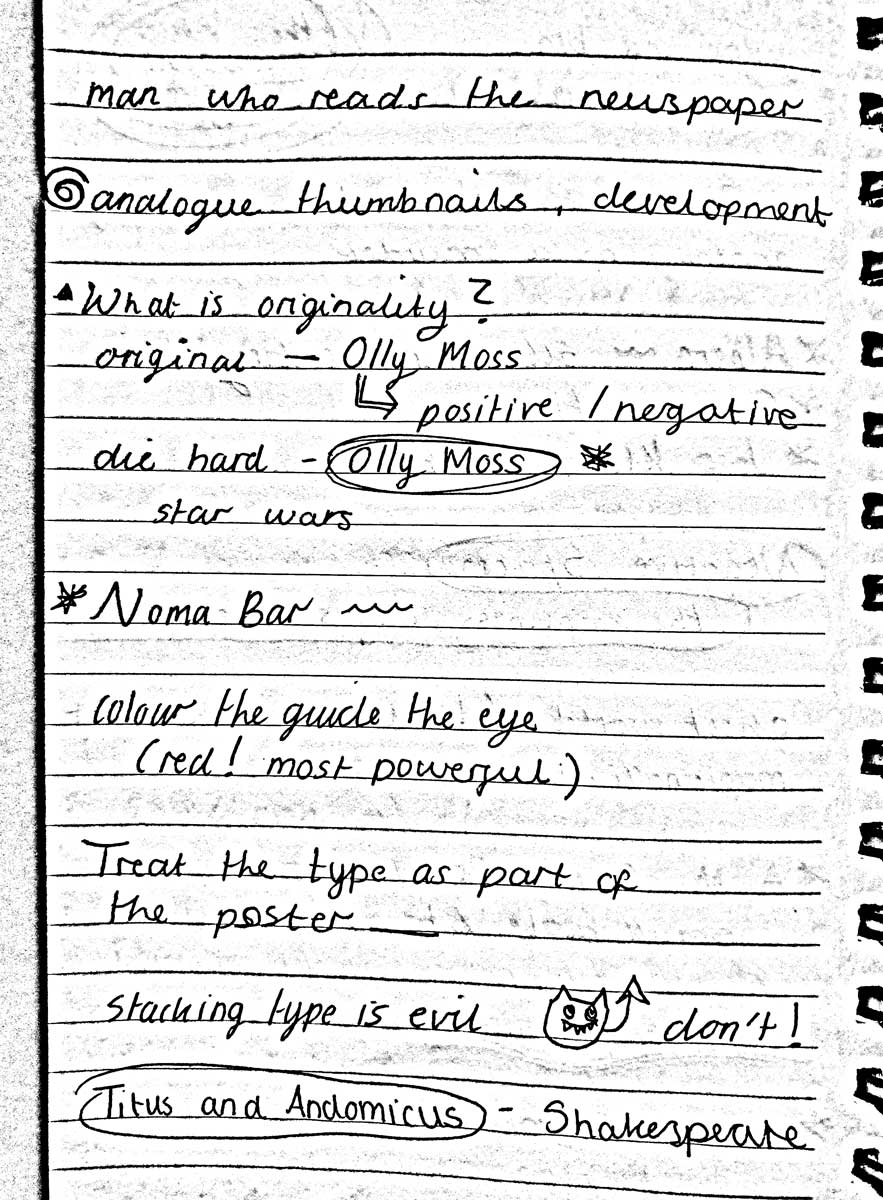 man who reads the newspaper
analogue thumbnails, development
What is originality?
original — Olly Moss
positive / negative
die hard - Olly Moss
star wars
Noma Bar
colour the guide the eye
(red! most powerful)
Treat the type as part of
the poster
stacking type is evil don't!
Titus and Andomicus - Shakespeare